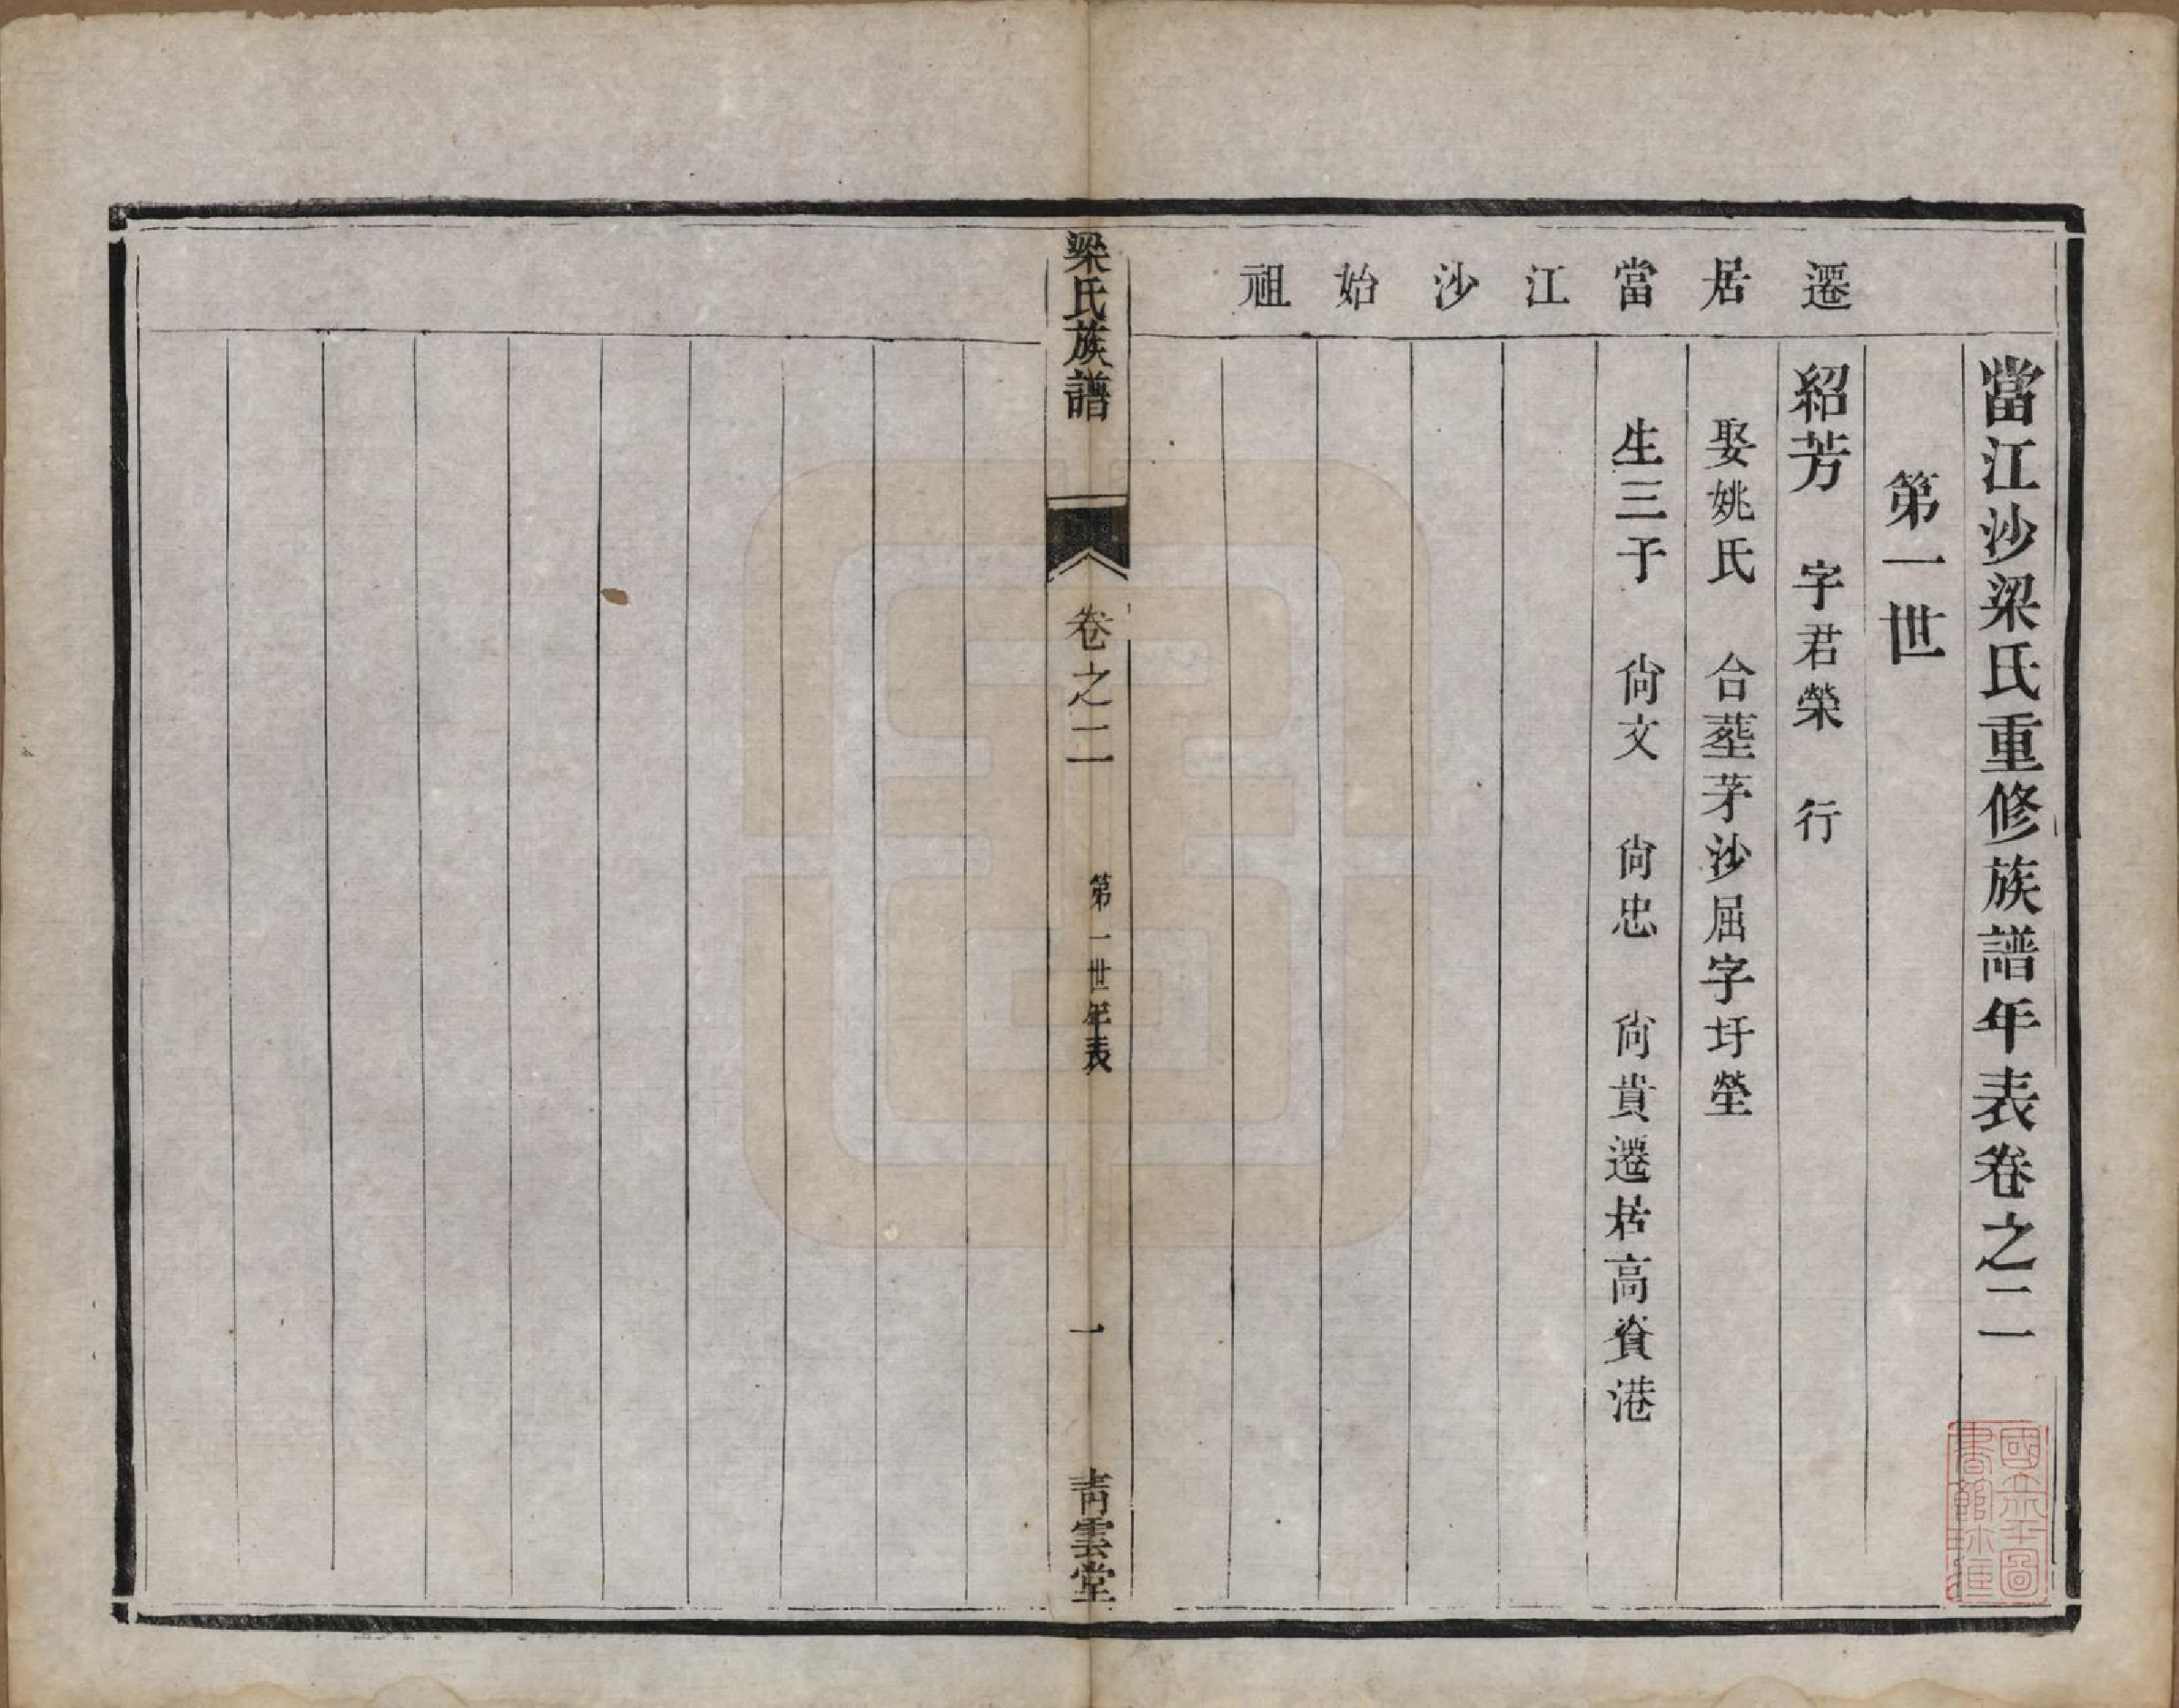 當江沙梁氏重修族譜年表卷之二
第一世
遷居當江沙始祖
紹芳 字君榮 行
娶姚氏 合塟茅沙屈字圩塋
生三子 尙文 尙忠 尙貴遷居高資港
梁氏族譜 卷之二 第一世年表 一 青雲堂
國立北平圖書館珍藏